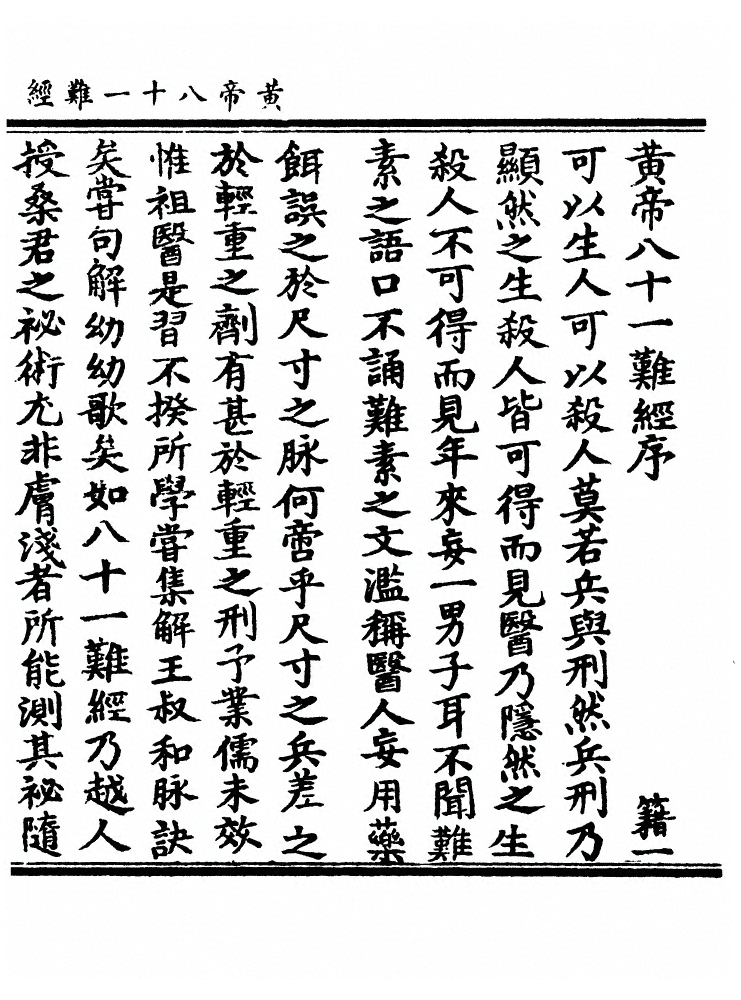 黃帝八十一難經
黃帝八十一難經序 籍一
可以生人可以殺人莫若兵與刑然兵刑乃
顯然之生殺人皆可得而見醫乃隱然之生
殺人不可得而見年來妄一男子耳不聞難
素之語口不誦難素之文濫稱醫人妄用藥
餌誤之於尺寸之脉何啻乎尺寸之兵差之
於輕重之劑有甚於輕重之刑予業儒未效
惟祖醫是習不揆所學嘗集解王叔和脉訣
矣嘗句解幼幼歌矣如八十一難經乃越人
授桑君之祕術尤非膚淺者所能測其祕隨